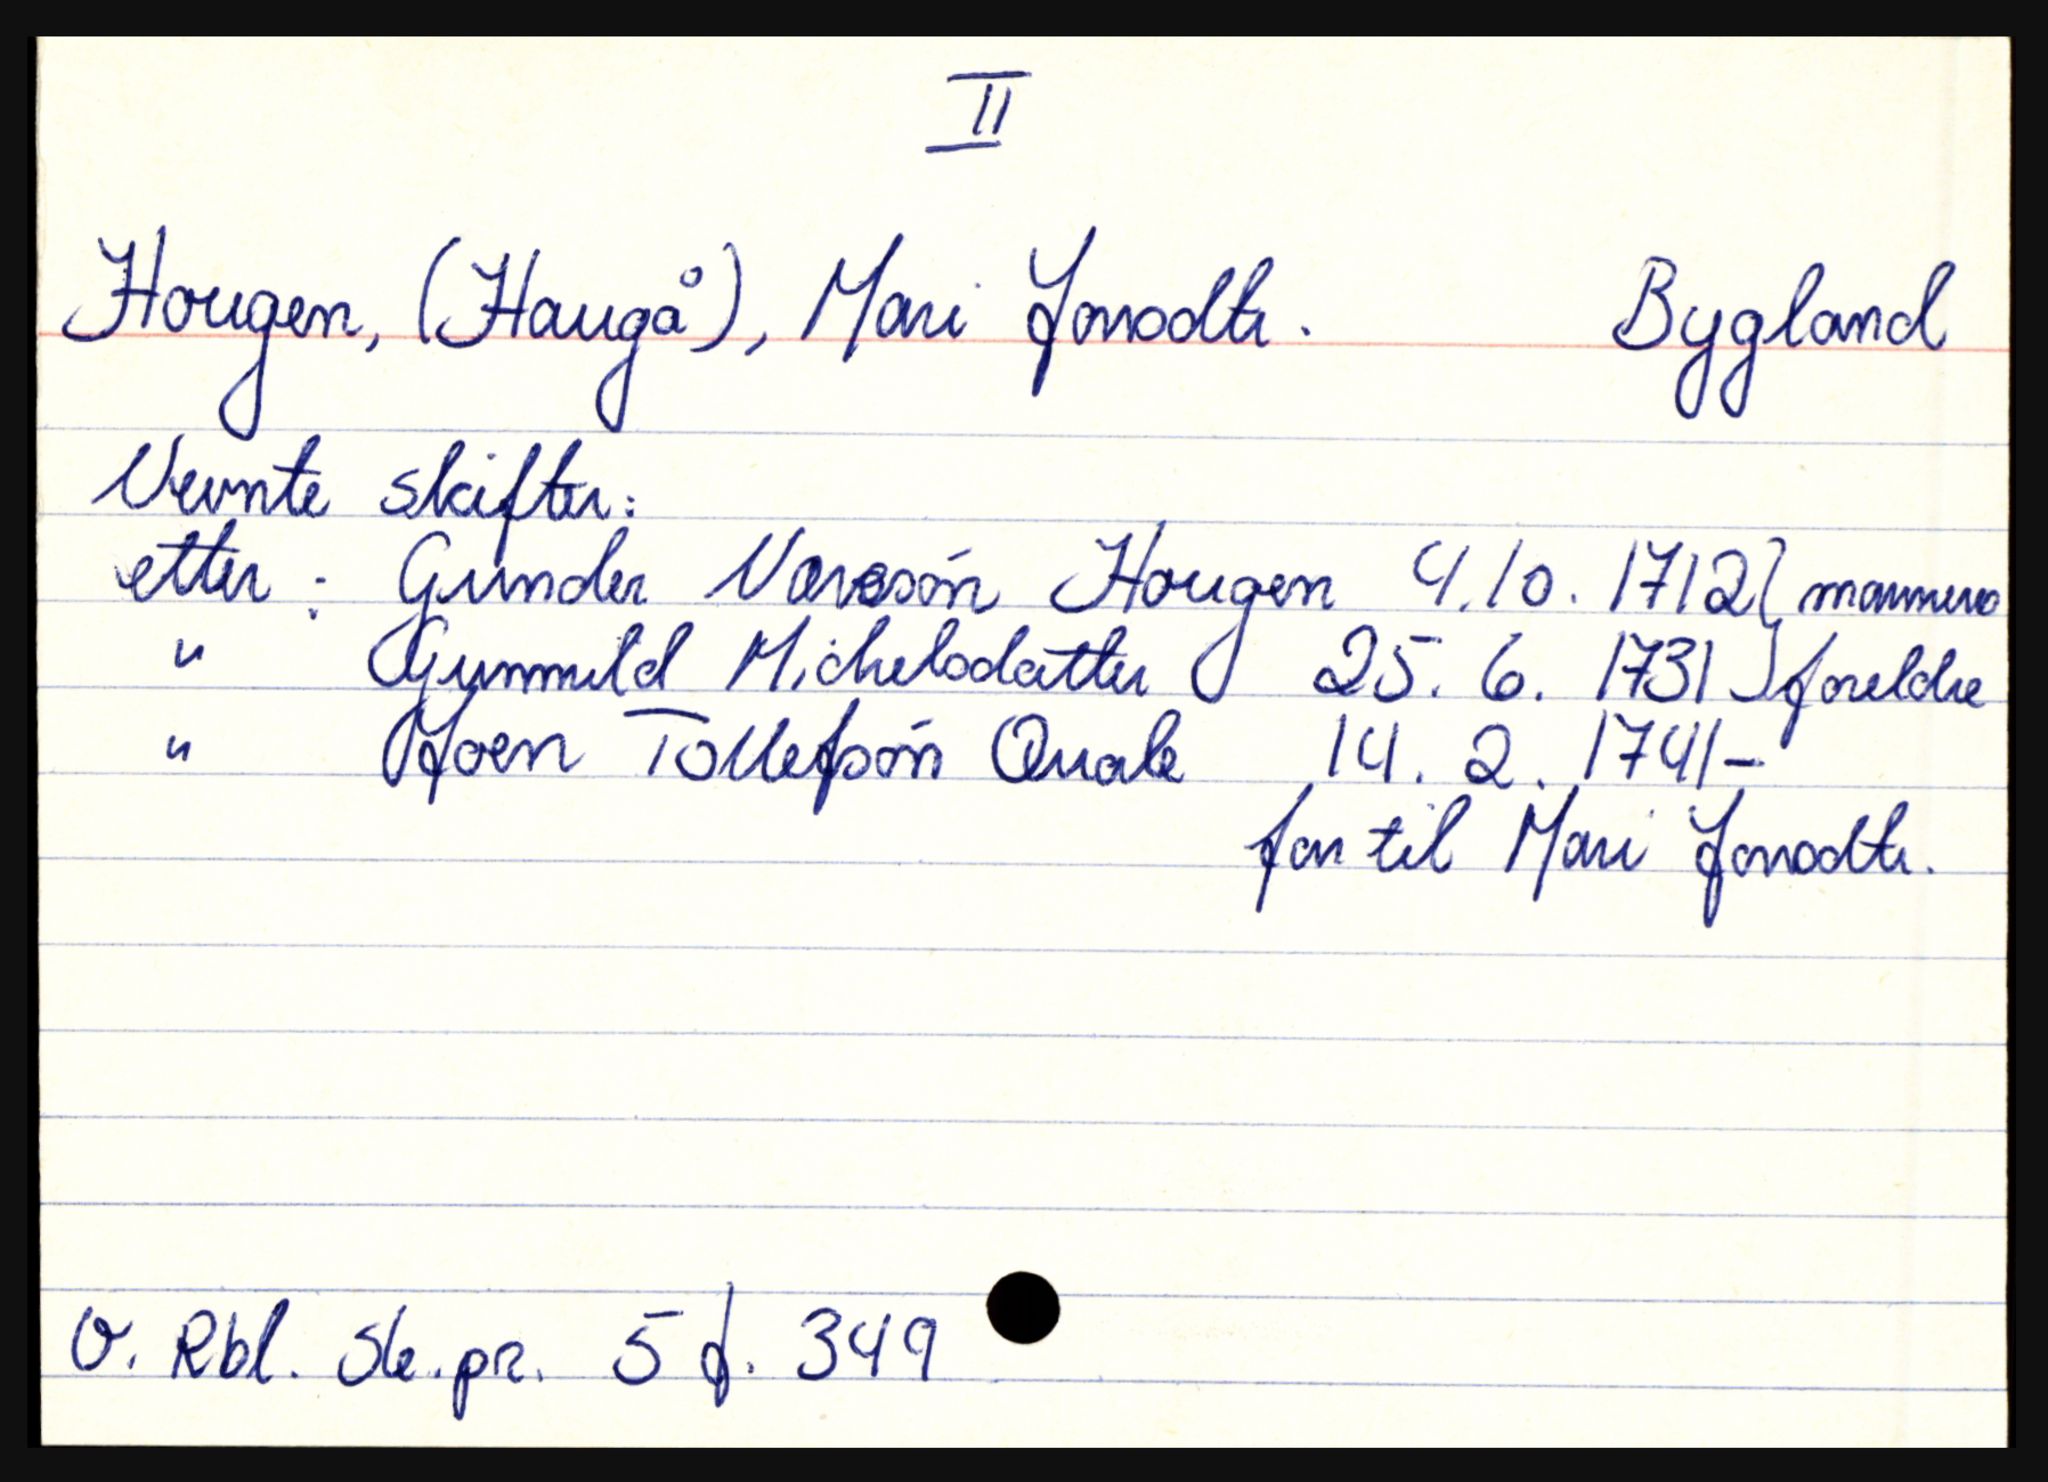 II
Hougen, (Haugå), Mari Jonsdtr. Bygland
Nevnte skifter:
etter : Gunder Næresøn Hougen 4.10. 1712 } mannens
" Gunnuld Michelsdatter 25. 6. 1731 } foreldre
" Joen Tollefsøn Quale 14. 2. 1741 –
far til Mari Jonsdtr.
O. Rbl. Sk.pr. 5 f. 349